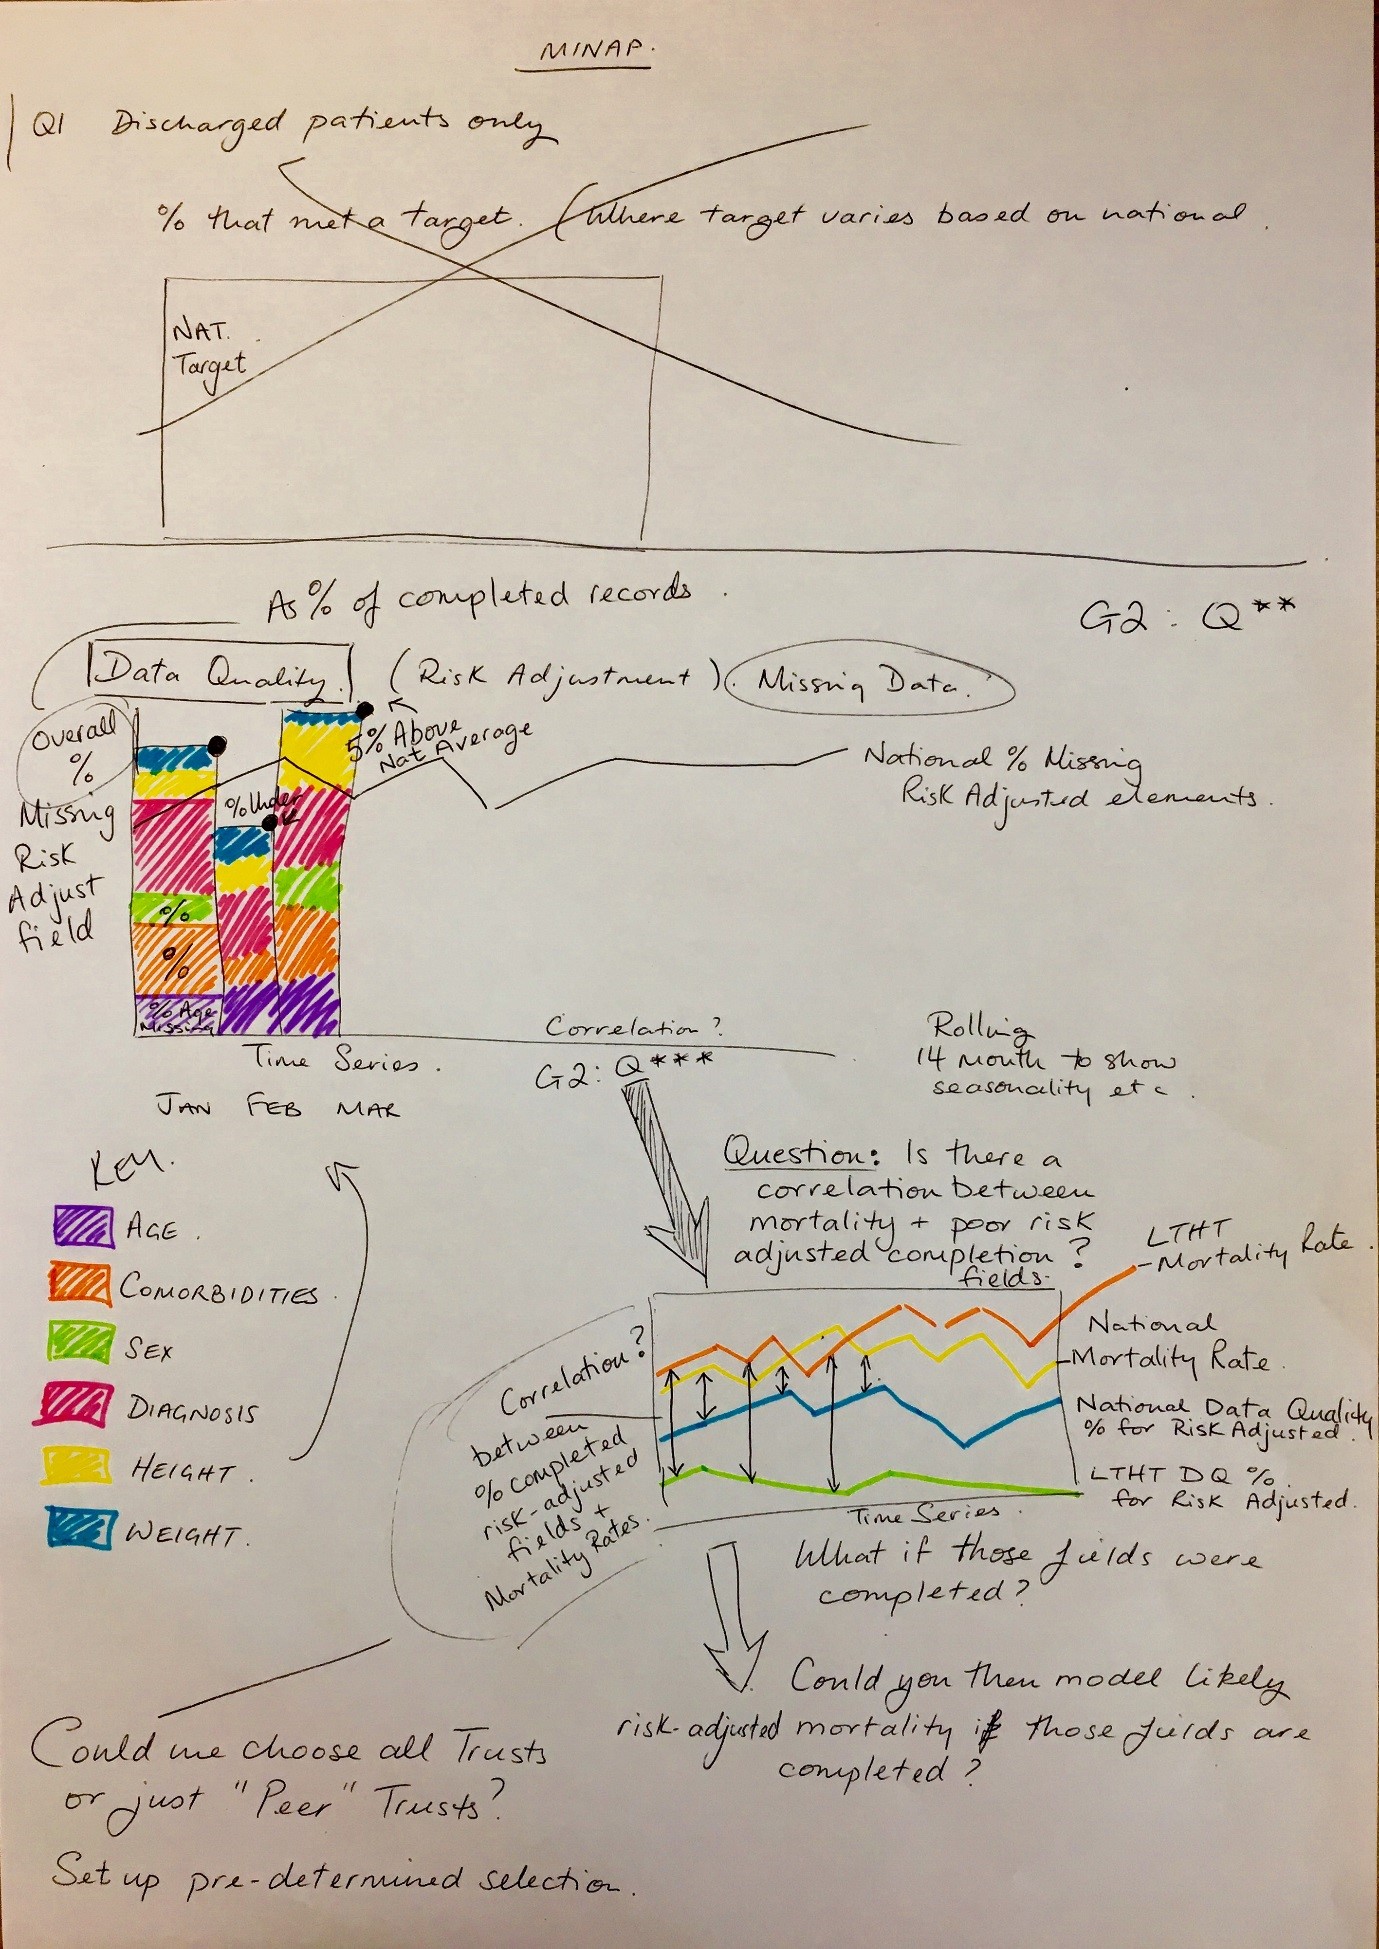 MINAP.
Q1 Discharged patients only
% that met a target. (Where target varies based on national.
NAT.
Target
As % of completed records.
G2: Q**
Data Quality. (Risk Adjustment). Missing Data.
Overall
%
Missing
Risk
Adjust
field
5% Above
Nat Average
% Under
National % Missing
Risk Adjusted elements.
%
%
% Age
Missing
Time Series.
JAN FEB MAR
Correlation?
G2: Q***
Rolling
14 month to show
seasonality etc.
KEY.
AGE.
COMORBIDITIES.
SEX
DIAGNOSIS
HEIGHT.
WEIGHT.
Question: Is there a
correlation between
mortality + poor risk
adjusted completion?
fields.
LTHT
Mortality Rate.
National
Mortality Rate.
National Data Quality
% for Risk Adjusted.
LTHT DQ %
for Risk Adjusted.
Time Series.
Correlation?
between
% completed
risk-adjusted
fields +
Mortality Rates.
What if those fields were
completed?
Could you then model likely
risk-adjusted mortality if those fields are
completed?
Could we choose all Trusts
or just "Peer" Trusts?
Set up pre-determined selection.